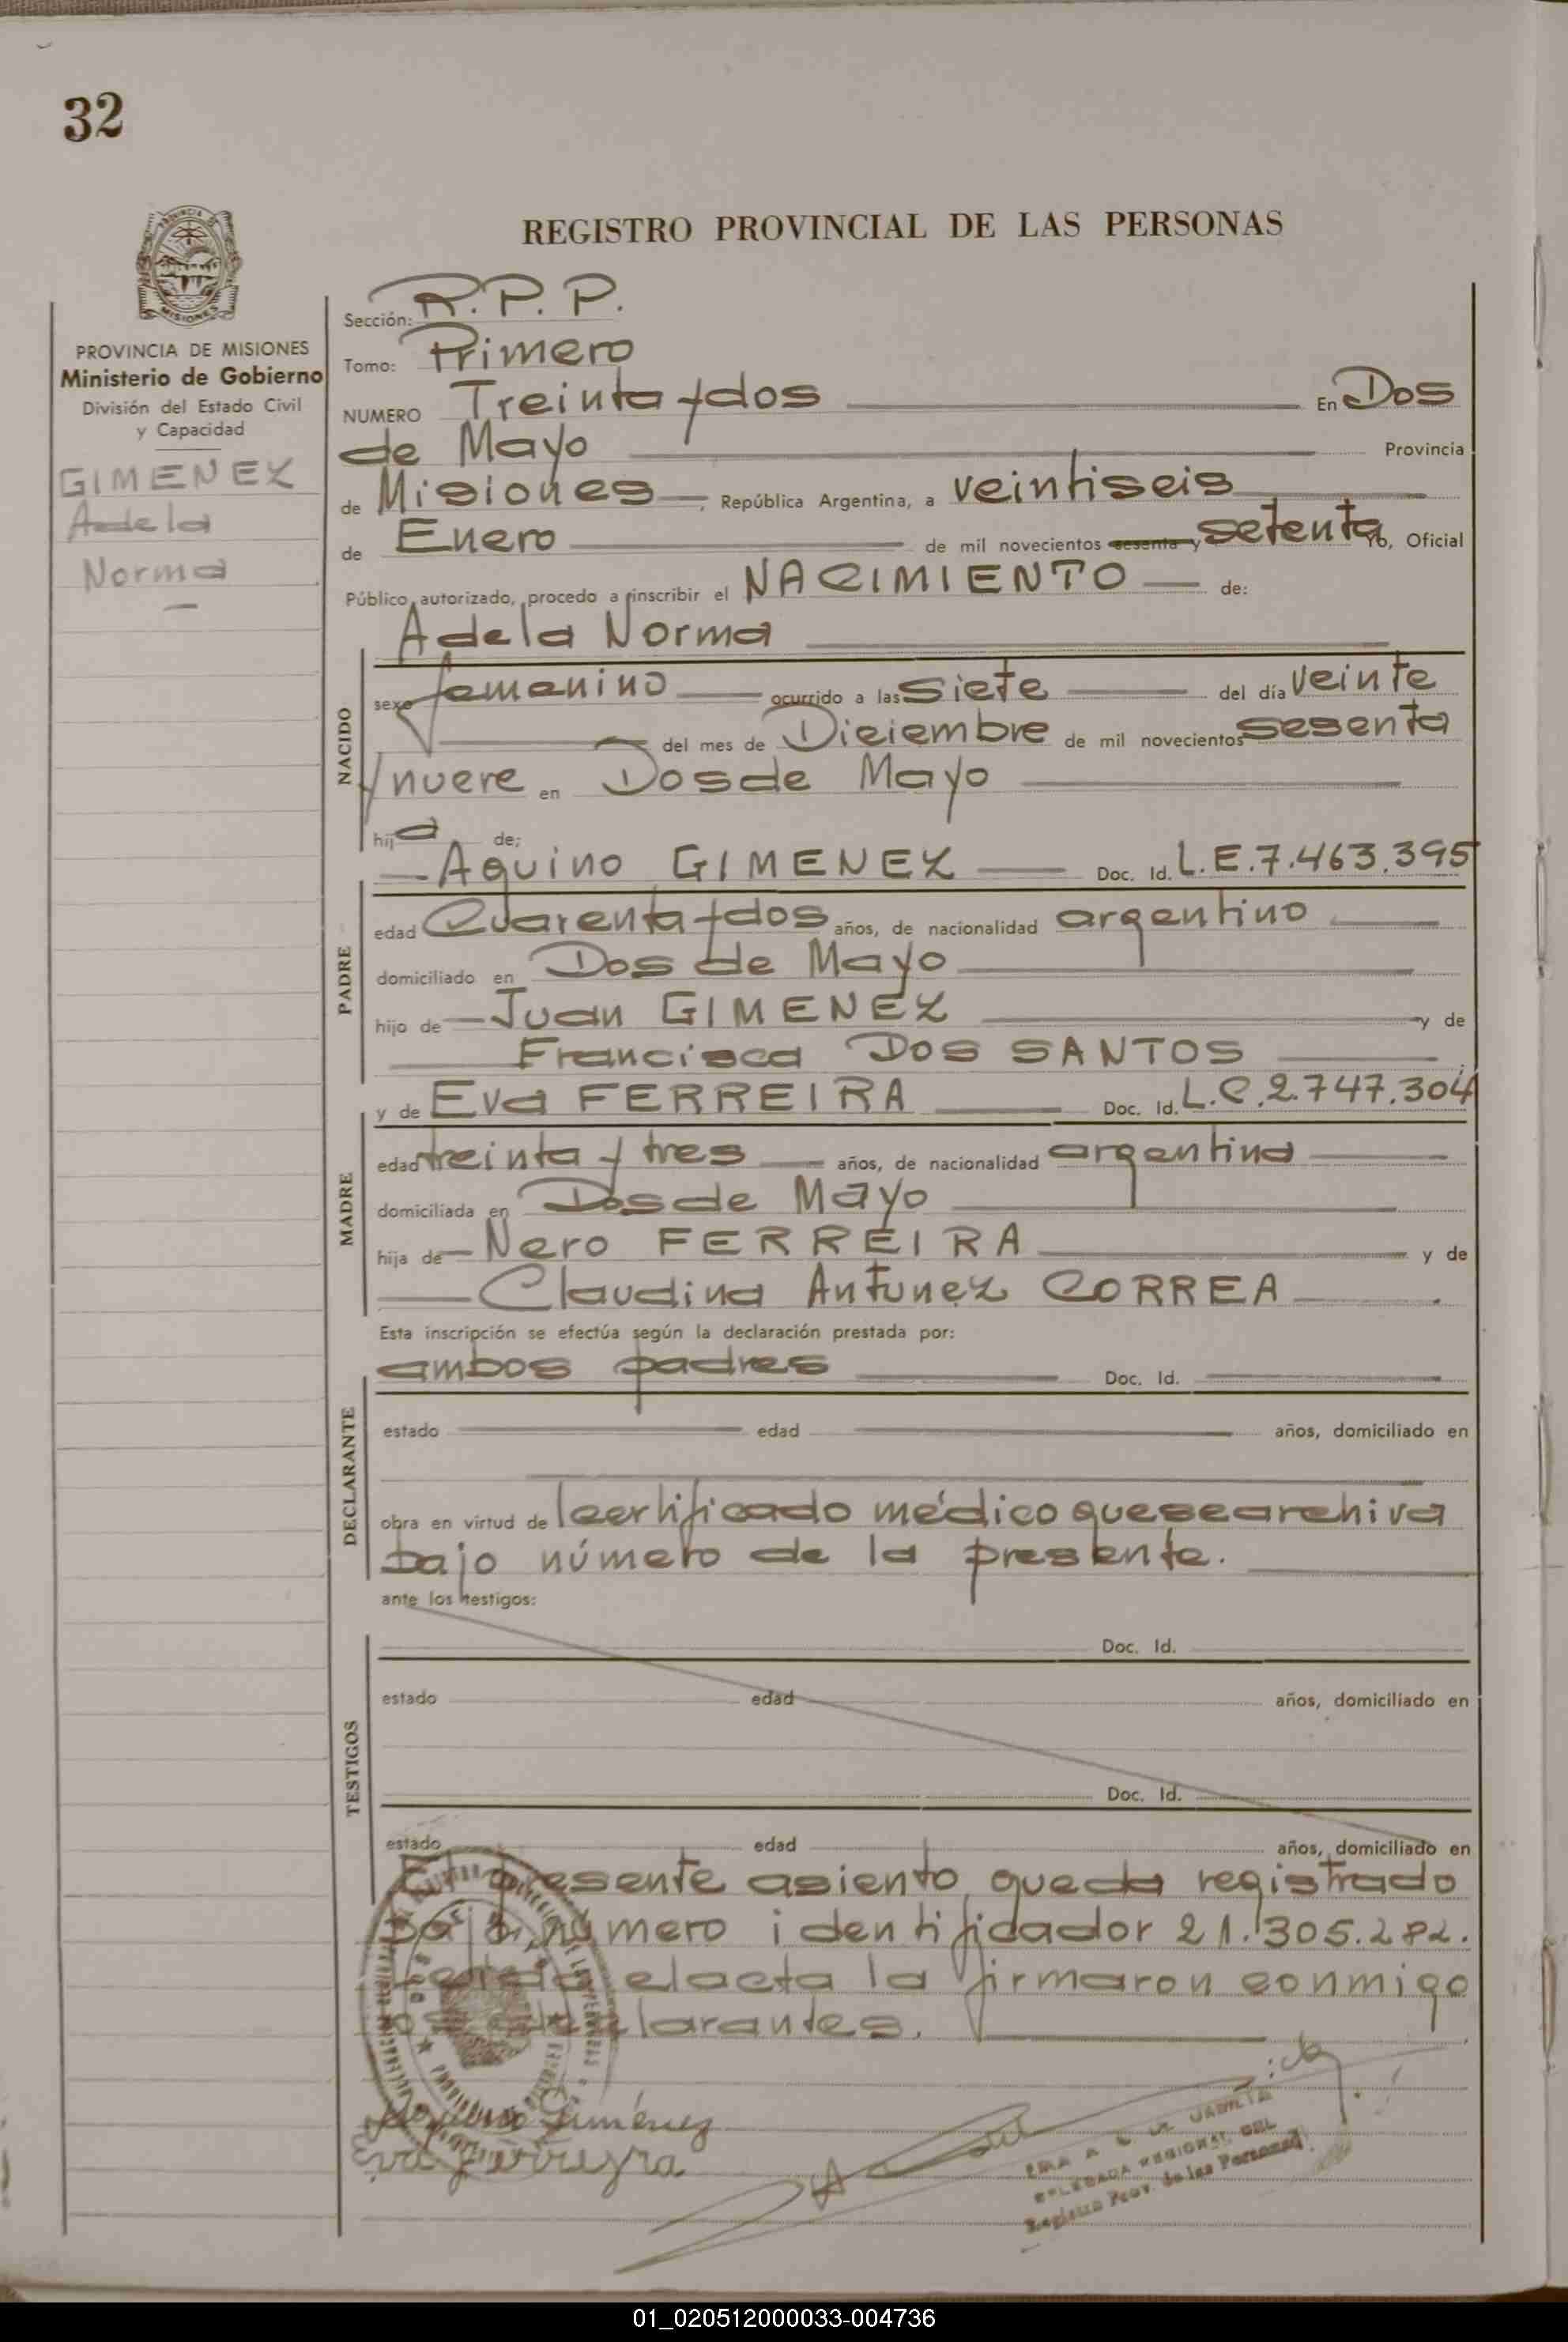 32
REGISTRO PROVINCIAL DE LAS PERSONAS
PROVINCIA DE
MISIONES
PROVINCIA DE MISIONES
Ministerio de Gobierno
División del Estado Civil
y Capacidad
GIMENEZ
Adela
Norma
Sección: R.P.P.
Tomo: Primero
NUMERO Treinta y dos En Dos
de Mayo Provincia
de Misiones, República Argentina, a veintiseis
de Enero de mil novecientos sesenta y setenta Yo, Oficial
Público autorizado, procedo a inscribir el NACIMIENTO de:
Adela Norma
NACIDO
sexo femenino ocurrido a las siete del día veinte
del mes de Diciembre de mil novecientos sesenta
y nueve en Dos de Mayo
hija de:
Aquino GIMENEZ Doc. Id. L.E.7.463.395
PADRE
edad Cuarenta y dos años, de nacionalidad argentino
domiciliado en Dos de Mayo
hijo de Juan GIMENEZ y de
Francisca DOS SANTOS
y de Eva FERREIRA Doc. Id. L.C.2.747.304
MADRE
edad treinta y tres años, de nacionalidad argentina
domiciliada en Dos de Mayo
hija de Nero FERREIRA y de
Claudina Antunez CORREA
Esta inscripción se efectúa según la declaración prestada por:
ambos padres Doc. Id.
DECLARANTE
estado edad años, domiciliado en
obra en virtud de certificado médico que se archiva
bajo número de la presente.
ante los testigos:
Doc. Id.
TESTIGOS
estado edad años, domiciliado en
Doc. Id.
estado edad años, domiciliado en
El presente asiento queda registrado
bajo número identificador 21.305.282.
el acta la firmaron conmigo
declarantes.
Aquino Giménez
Eva Ferreyra
DELEGADA REGIONAL DEL
Registro Prov. de las Personas
01_020512000033-004736